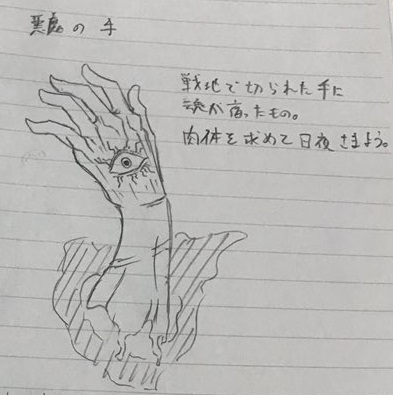 悪魔の手
戦地で切られた手に
魂が宿ったもの。
肉体を求めて日夜さまよう。